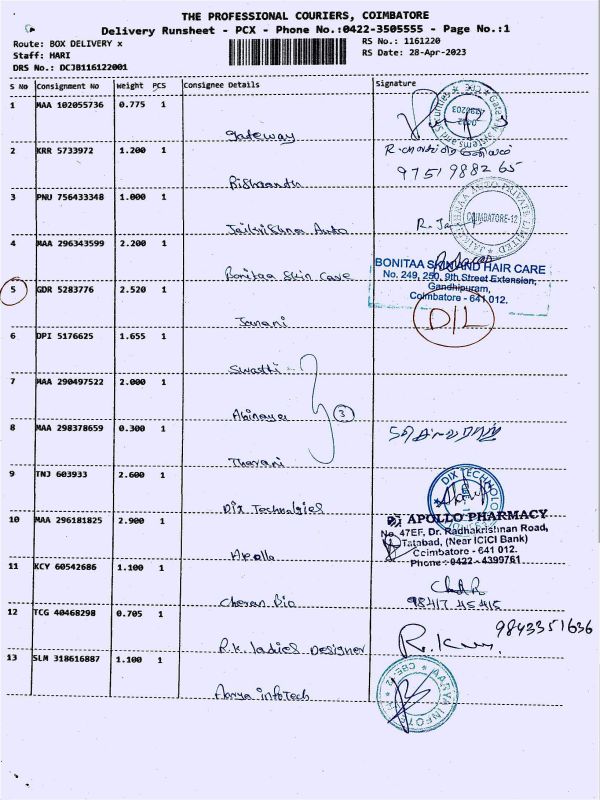 THE PROFESSIONAL COURIERS, COIMBATORE
Delivery Runsheet - PCX - Phone No.:0422-3505555 - Page No.:1
Route: BOX DELIVERY x
RS No.: 1161220
Staff: HARI
RS Date: 28-Apr-2023
DRS No.: DCJB116122001
S No Consignment No Weight PCS Consignee Details Signature
1 MAA 102055736 0.775 1
Gateway
2 KRR 5733972 1.200 1
97519882 65
3 PNU 756433348 1.000 1
Jaikrishna Auto
COIMBATORE-12
4 MAA 296343599 2.200 1
Bonitaa Skin Care
BONITAA SKIN AND HAIR CARE
No. 249, 250, 9th Street Extension,
Gandhipuram,
Coimbatore - 641 012.
5 GDR 5283776 2.520 1
D/L
Janani
6 DPI 5176625 1.655 1
Swathi
7 MAA 290497522 2.000 1
Abinaya
3
8 MAA 298378659 0.300 1
Tharani
9 TNJ 603933 2.600 1
DIX TECHNOLO
Dix Technologies
10 MAA 296181825 2.900 1
APOLLO PHARMACY
No. 47EF, Dr. Radhakrishnan Road,
Tatabad, (Near ICICI Bank)
Coimbatore - 641 012.
Phone : 0422 - 4399761
Apollo
11 KCY 60542686 1.100 1
Cheran Bio
98417 45415
12 TCG 40468298 0.705 1
R.K. ladies Designer
9843351636
13 SLM 318616887 1.100 1
Aarya infoTech